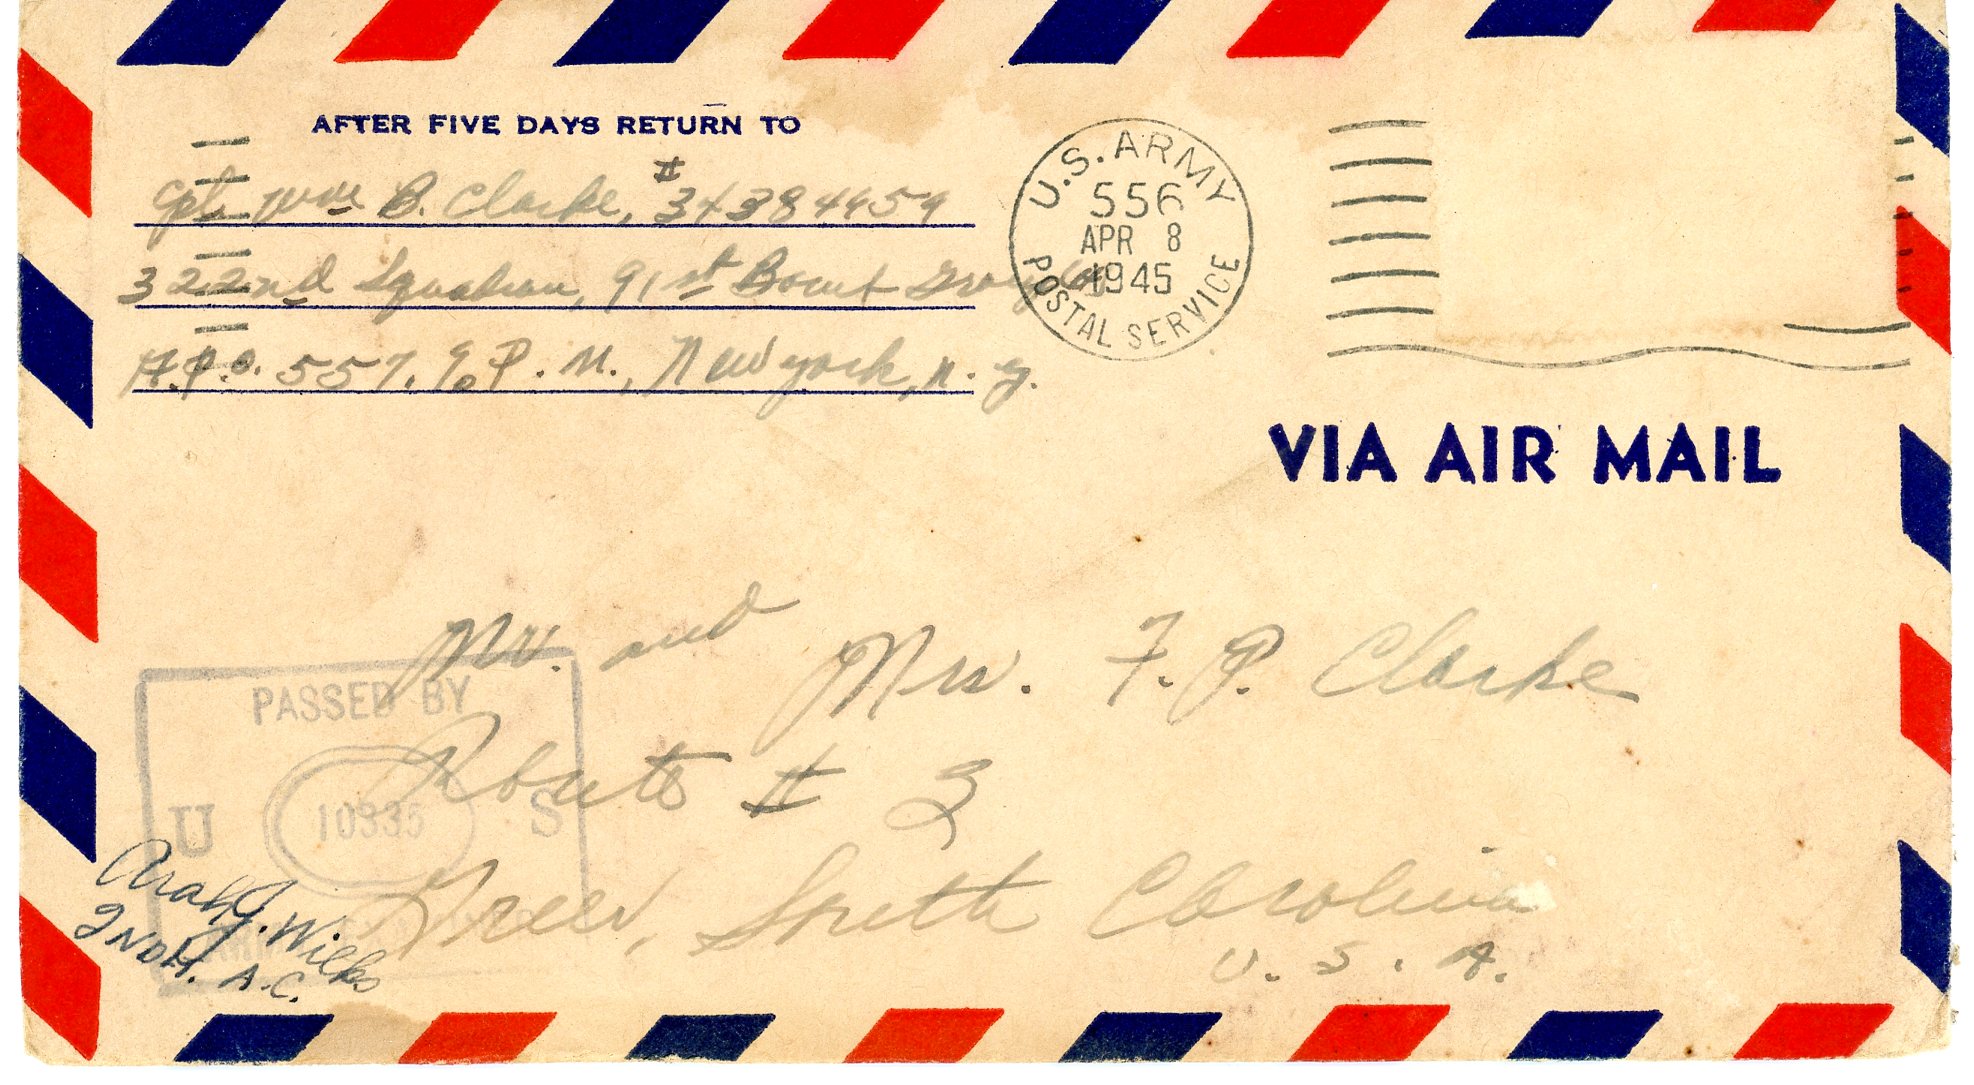 AFTER FIVE DAYS RETURN TO
Cpl. Wm B. Clarke, # 34384959
322nd Squadron, 91st Bomb Group (H)
A.P.O. 557, % P.M., New York, N.Y.
U.S. ARMY
556
APR 8
1945
POSTAL SERVICE
VIA AIR MAIL
Mr. and Mrs. F. P. Clarke
Route # 3
Greer, South Carolina
U. S. A.
PASSED BY
U 10335 S
ARMY EXAMINER
J. Wilks
2nd Lt. A.C.